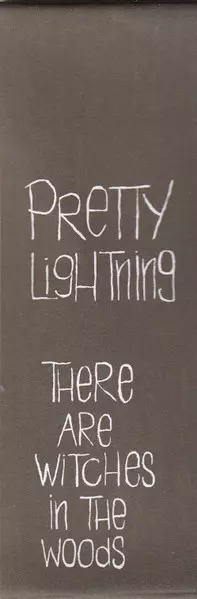 PRETTY
LigHTning
THeRe
ARe
WiTCHes
in THe
WOODS